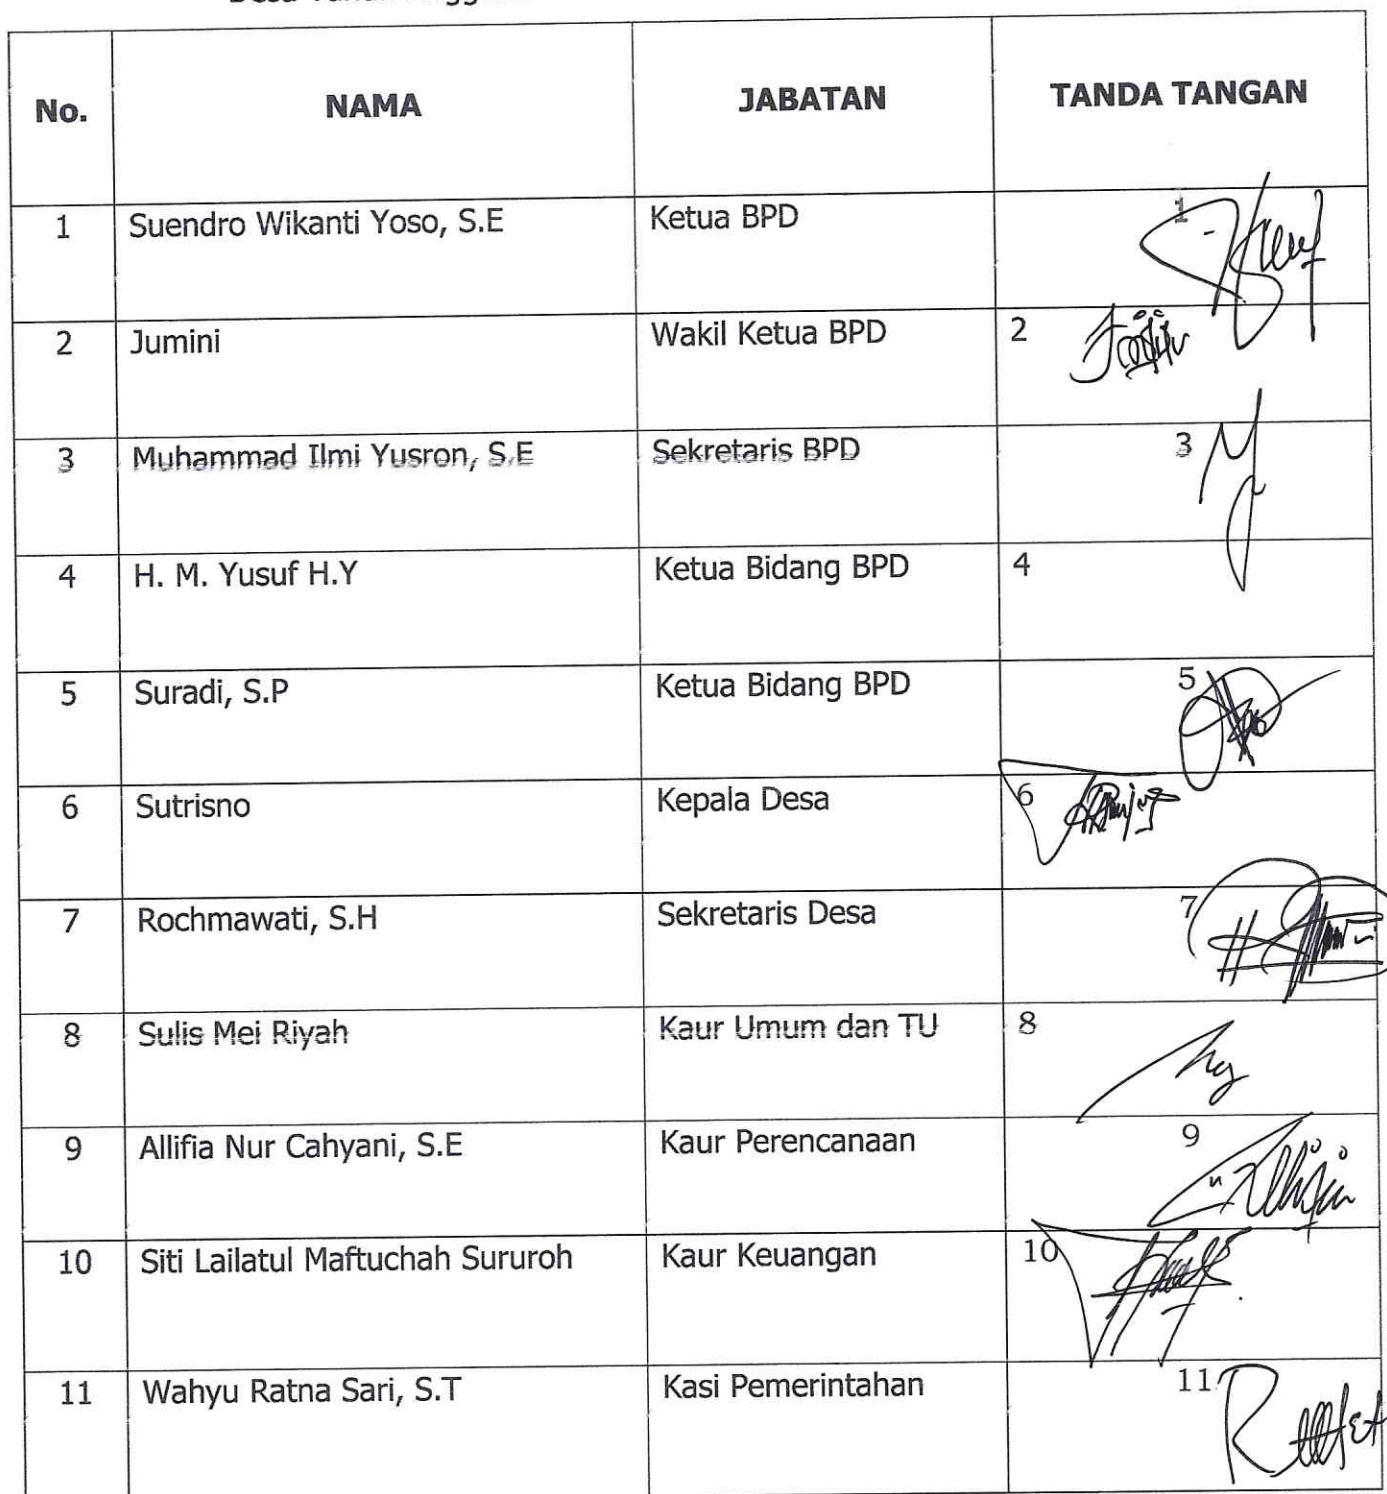 No. NAMA JABATAN TANDA TANGAN
1 Suendro Wikanti Yoso, S.E Ketua BPD 1
2 Jumini Wakil Ketua BPD 2
3 Muhammad Ilmi Yusron, S.E Sekretaris BPD 3
4 H. M. Yusuf H.Y Ketua Bidang BPD 4
5 Suradi, S.P Ketua Bidang BPD 5
6 Sutrisno Kepala Desa 6
7 Rochmawati, S.H Sekretaris Desa 7
8 Sulis Mei Riyah Kaur Umum dan TU 8
9 Allifia Nur Cahyani, S.E Kaur Perencanaan 9
10 Siti Lailatul Maftuchah Sururoh Kaur Keuangan 10
11 Wahyu Ratna Sari, S.T Kasi Pemerintahan 11